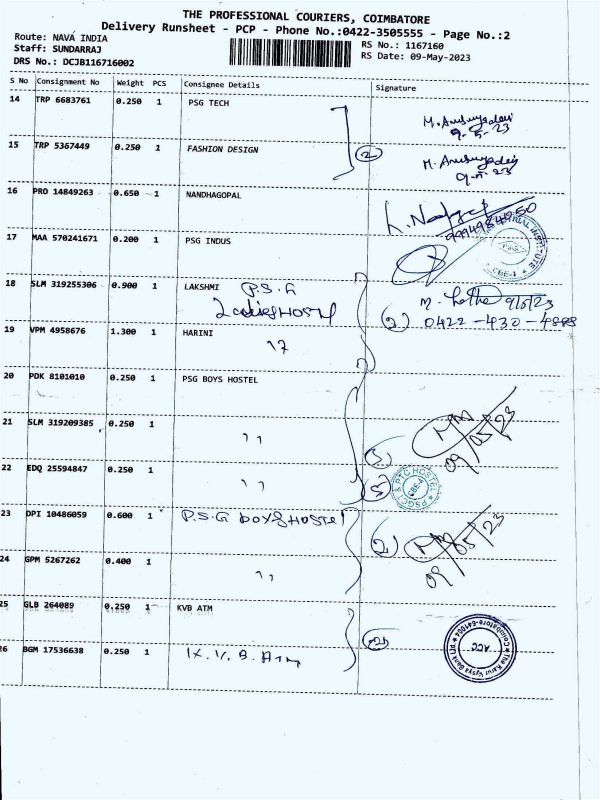 THE PROFESSIONAL COURIERS, COIMBATORE
Delivery Runsheet - PCP - Phone No.:0422-3505555 - Page No.:2
Route: NAVA INDIA
Staff: SUNDARRAJ
DRS No.: DCJB116716002
RS No.: 1167160
RS Date: 09-May-2023
S No Consignment No Weight PCS Consignee Details Signature
14 TRP 6683761 0.250 1 PSG TECH
M. Anusuyadevi
9-5-23
15 TRP 5367449 0.250 1 FASHION DESIGN
2
M. Anusuyadevi
16 PRO 14849263 0.650 1 NANDHAGOPAL
17 MAA 570241671 0.200 1 PSG INDUS
18 SLM 319255306 0.900 1 LAKSHMI P.S.G
Ladies HOSTEL
9/5/23
19 VPM 4958676 1.300 1 HARINI
20 PDK 8101010 0.250 1 PSG BOYS HOSTEL
21 SLM 319209385 0.250 1 ,,
09/05/23
22 EDQ 25594847 0.250 1 ,,
23 DPI 10486059 0.600 1 P.S.G BOYS HOSTEL
2
09/05/23
24 GPM 5267262 0.400 1
,,
25 GLB 264089 0.250 1 KVB ATM
26 BGM 17536638 0.250 1 K.V.B. ATM